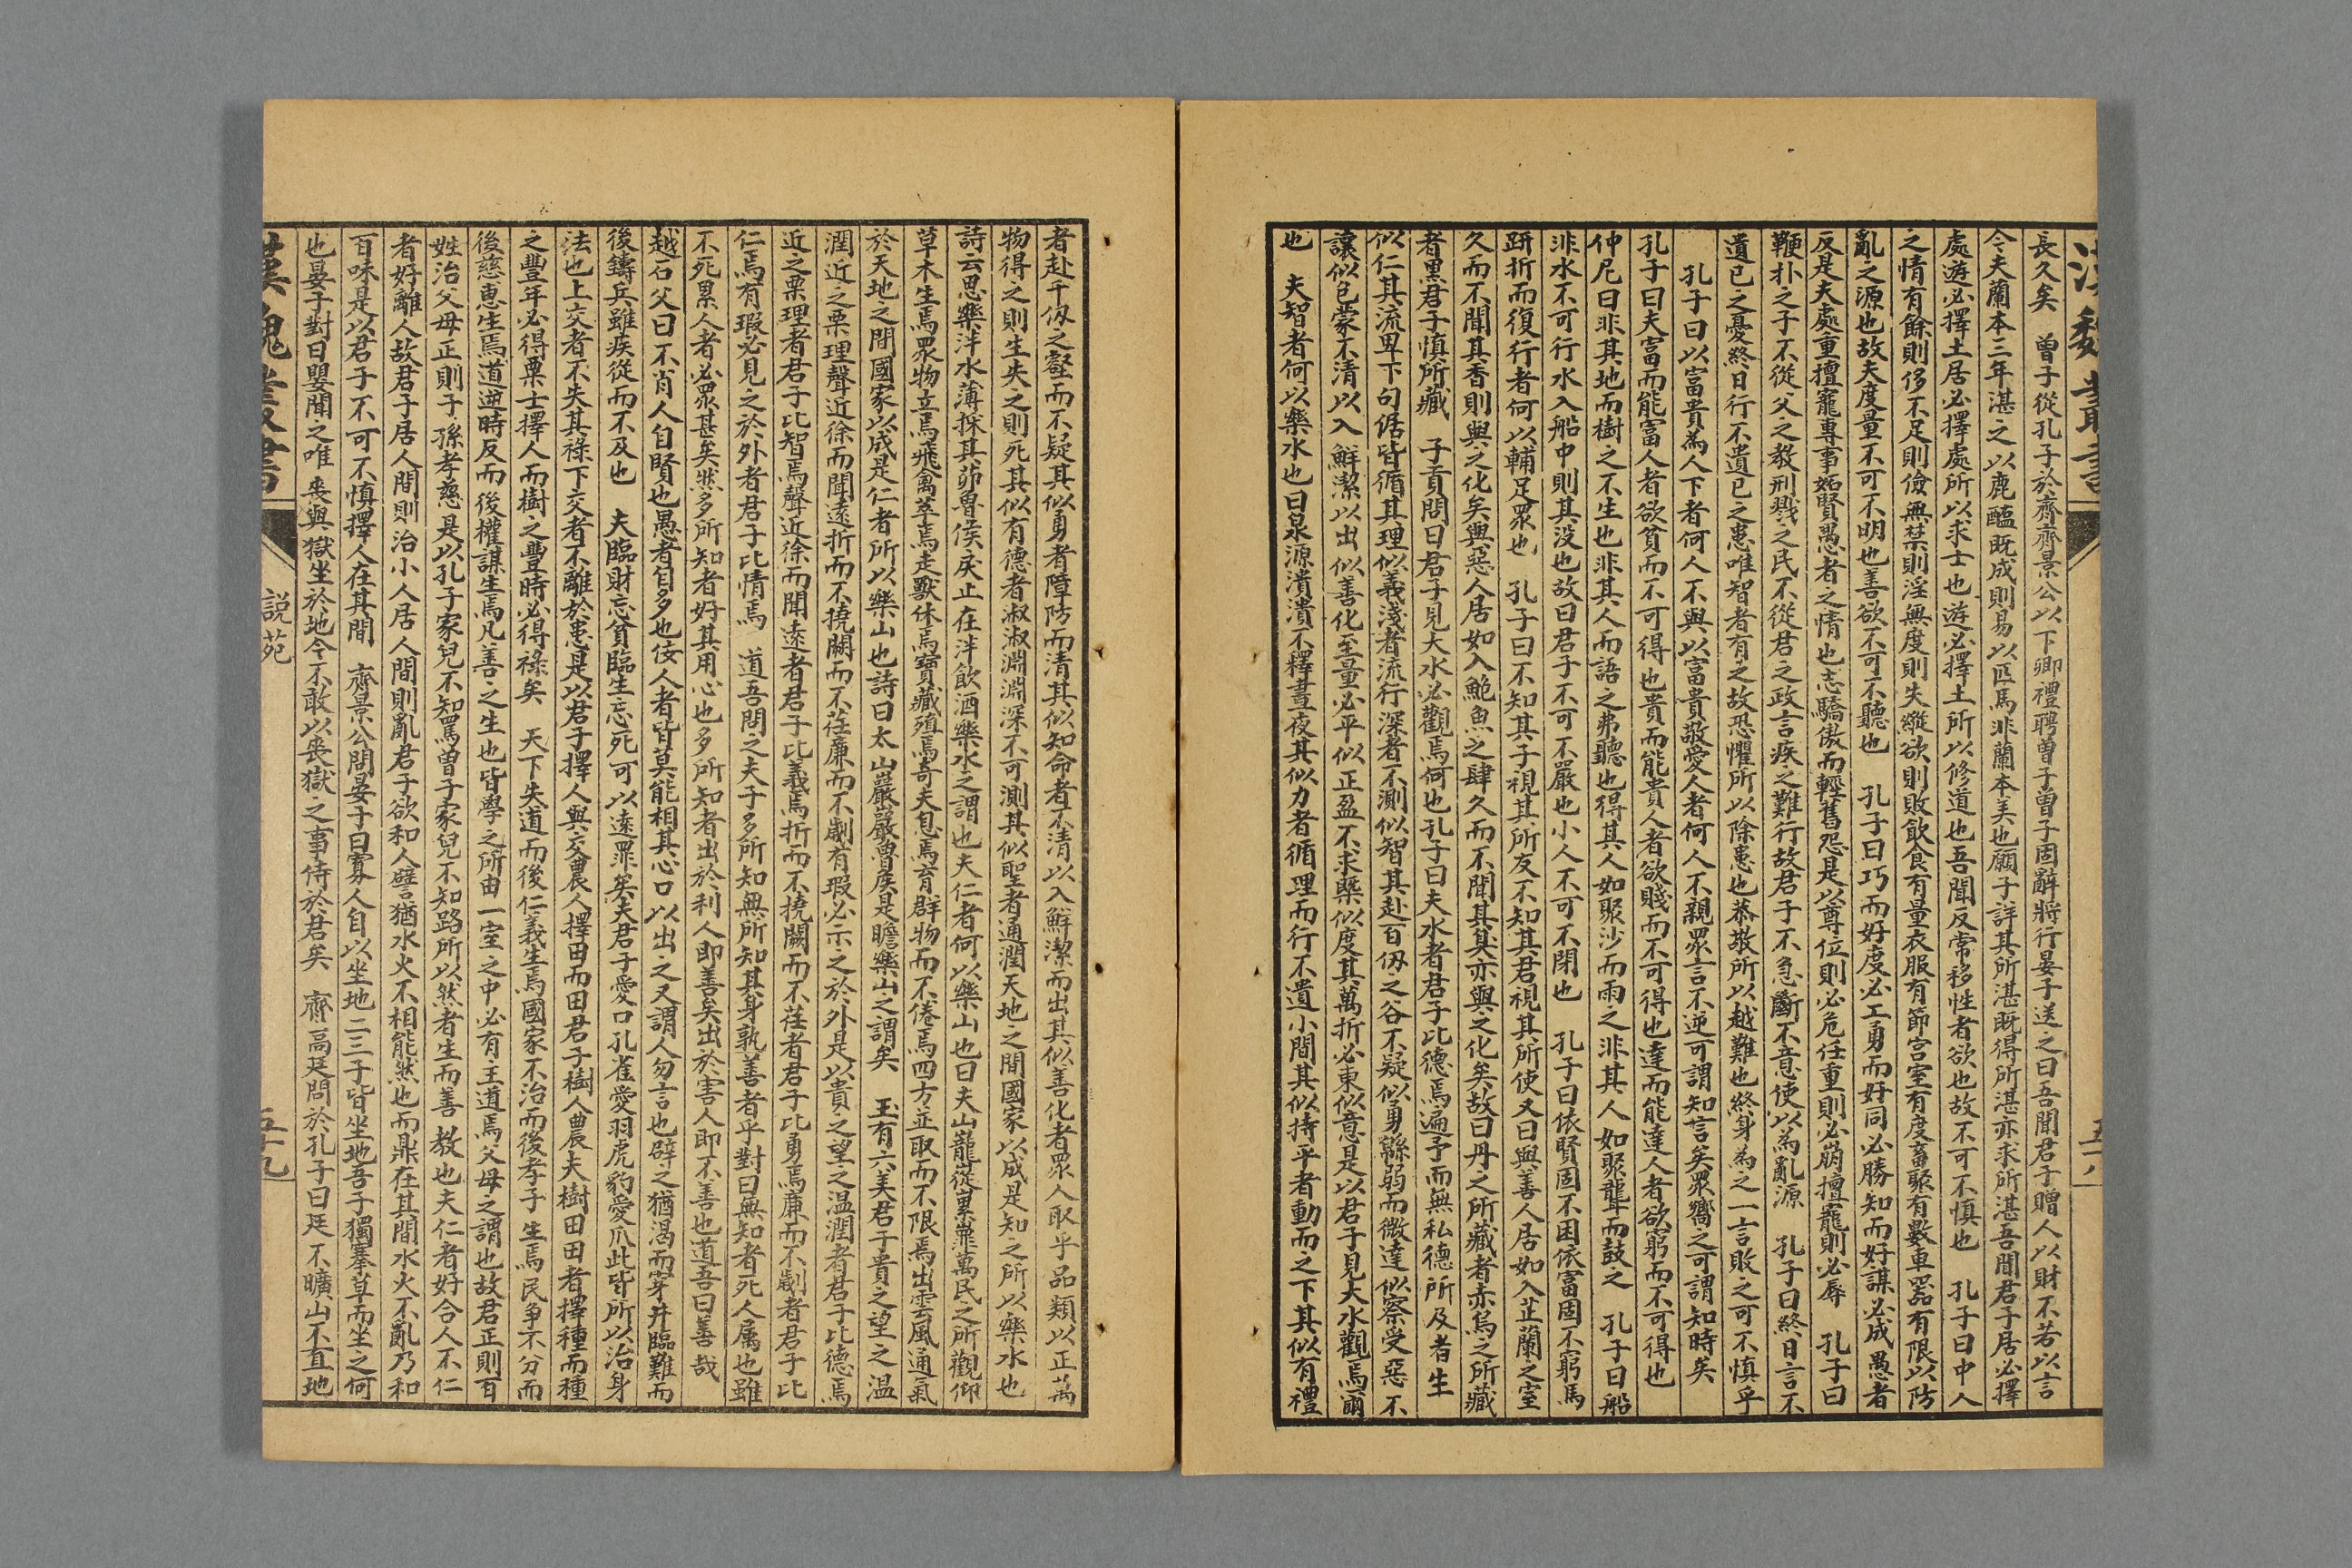 漢魏叢書
五十八
長久矣　曾子從孔子於齊齊景公以下卿禮聘曾子曾子固辭將行晏子送之曰吾聞君子贈人以財不若以言
今夫蘭本三年湛之以鹿醢既成則易以匹馬非蘭本美也願子詳其所湛既得所湛亦求所湛吾聞君子居必擇
處遊必擇士居必擇處所以求士也遊必擇士所以修道也吾聞反常移性者欲也故不可不慎也　孔子曰中人
之情有餘則侈不足則儉無禁則淫無度則失縱欲則敗飲食有量衣服有節宮室有度畜聚有數車器有限以防
亂之源也故夫度量不可不明也善欲不可不聽也　孔子曰巧而好度必工勇而好同必勝知而好謀必成愚者
反是夫處重擅寵專事妬賢愚者之情也志驕傲而輕舊怨是以尊位則必危任重則必崩擅寵則必辱　孔子曰
鞭扑之子不從父之教刑戮之民不從君之政言疾之難行故君子不急斷不意使以為亂源　孔子曰終日言不
遺已之憂終日行不遺已之患唯智者有之故恐懼所以除患也恭敬所以越難也終身為之一言敗之可不慎乎
　孔子曰以富貴為人下者何人不與以富貴敬愛人者何人不親眾言不逆可謂知言矣眾嚮之可謂知時矣
孔子曰夫富而能富人者欲貧而不可得也貴而能貴人者欲賤而不可得也達而能達人者欲窮而不可得也
仲尼曰非其地而樹之不生也非其人而語之弗聽也得其人如聚沙而雨之非其人如聚聾而鼓之　孔子曰船
非水不可行水入船中則其沒也故曰君子不可不嚴也小人不可不閉也　孔子曰依賢固不困依富固不窮馬
趼折而復行者何以輔足眾也　孔子曰不知其子視其所友不知其君視其所使又曰與善人居如入芷蘭之室
久而不聞其香則與之化矣與惡人居如入鮑魚之肆久而不聞其臭亦與之化矣故曰丹之所藏者赤烏之所藏
者黑君子慎所藏　子貢問曰君子見大水必觀焉何也孔子曰夫水者君子比德焉遍予而無私德所及者生
似仁其流卑下句倨皆循其理似義淺者流行深者不測似智其赴百仞之谷不疑似勇緜弱而微達似察受惡不
讓似包蒙不清以入鮮潔以出似善化至量必平似正盈不求槩似度其萬折必東似意是以君子見大水觀焉爾
也　夫智者何以樂水也曰泉源潰潰不釋晝夜其似力者循理而行不遺小間其似持平者動而之下其似有禮
者赴千仞之壑而不疑其似勇者障防而清其似知命者不清以入鮮潔而出其似善化者眾人取乎品類以正萬
物得之則生失之則死其似有德者淑淑淵淵深不可測其似聖者通潤天地之間國家以成是知之所以樂水也
詩云思樂泮水薄採其茆魯侯戾止在泮飲酒樂水之謂也夫仁者何以樂山也曰夫山巃嵸藟嶵萬民之所觀仰
草木生焉眾物立焉飛禽萃焉走獸休焉寶藏殖焉奇夫息焉育群物而不倦焉四方並取而不限焉出雲風通氣
於天地之間國家以成是仁者所以樂山也詩曰太山巖巖魯侯是瞻樂山之謂矣　玉有六美君子貴之望之溫
潤近之栗理聲近徐而聞遠折而不撓闕而不荏廉而不劌有瑕必示之於外是以貴之望之溫潤者君子比德焉
近之栗理者君子比智焉聲近徐而聞遠者君子比義焉折而不撓闕而不荏者君子比勇焉廉而不劌者君子比
仁焉有瑕必見之於外者君子比情焉　道吾問之夫子多所知無所知其身孰善者乎對曰無知者死人屬也雖
不死累人者必眾甚矣然多所知者好其用心也多所知者出於利人即善矣出於害人即不善也道吾曰善哉
越石父曰不肖人自賢也愚者自多也佞人者皆莫能相其心口以出之又謂人勿言也譬之猶渴而穿井臨難而
後鑄兵雖疾從而不及也　夫臨財忘貧臨生忘死可以遠罪矣夫君子愛口孔雀愛羽虎豹愛爪此皆所以治身
法也上交者不失其祿下交者不離於患是以君子擇人與交農人擇田而田君子樹人農夫樹田田者擇種而種
之豐年必得粟士擇人而樹之豐時必得祿矣　天下失道而後仁義生焉國家不治而後孝子生焉民爭不分而
後慈惠生焉道逆時反而後權謀生焉凡善之生也皆學之所由一室之中必有主道焉父母之謂也故君正則百
姓治父母正則子孫孝慈是以孔子家兒不知罵曾子家兒不知路所以然者生而善教也夫仁者好合人不仁
者好離人故君子居人間則治小人居人間則亂君子欲和人譬猶水火不相能然也而鼎在其間水火不亂乃和
百味是以君子不可不慎擇人在其間　齊景公問晏子曰寡人自以坐地二三子皆坐地吾子獨搴草而坐之何
也晏子對曰嬰聞之唯喪與獄坐於地今不敢以喪獄之事侍於君矣　齊高廷問於孔子曰廷不曠山不直地
漢魏叢書
說苑
五十九